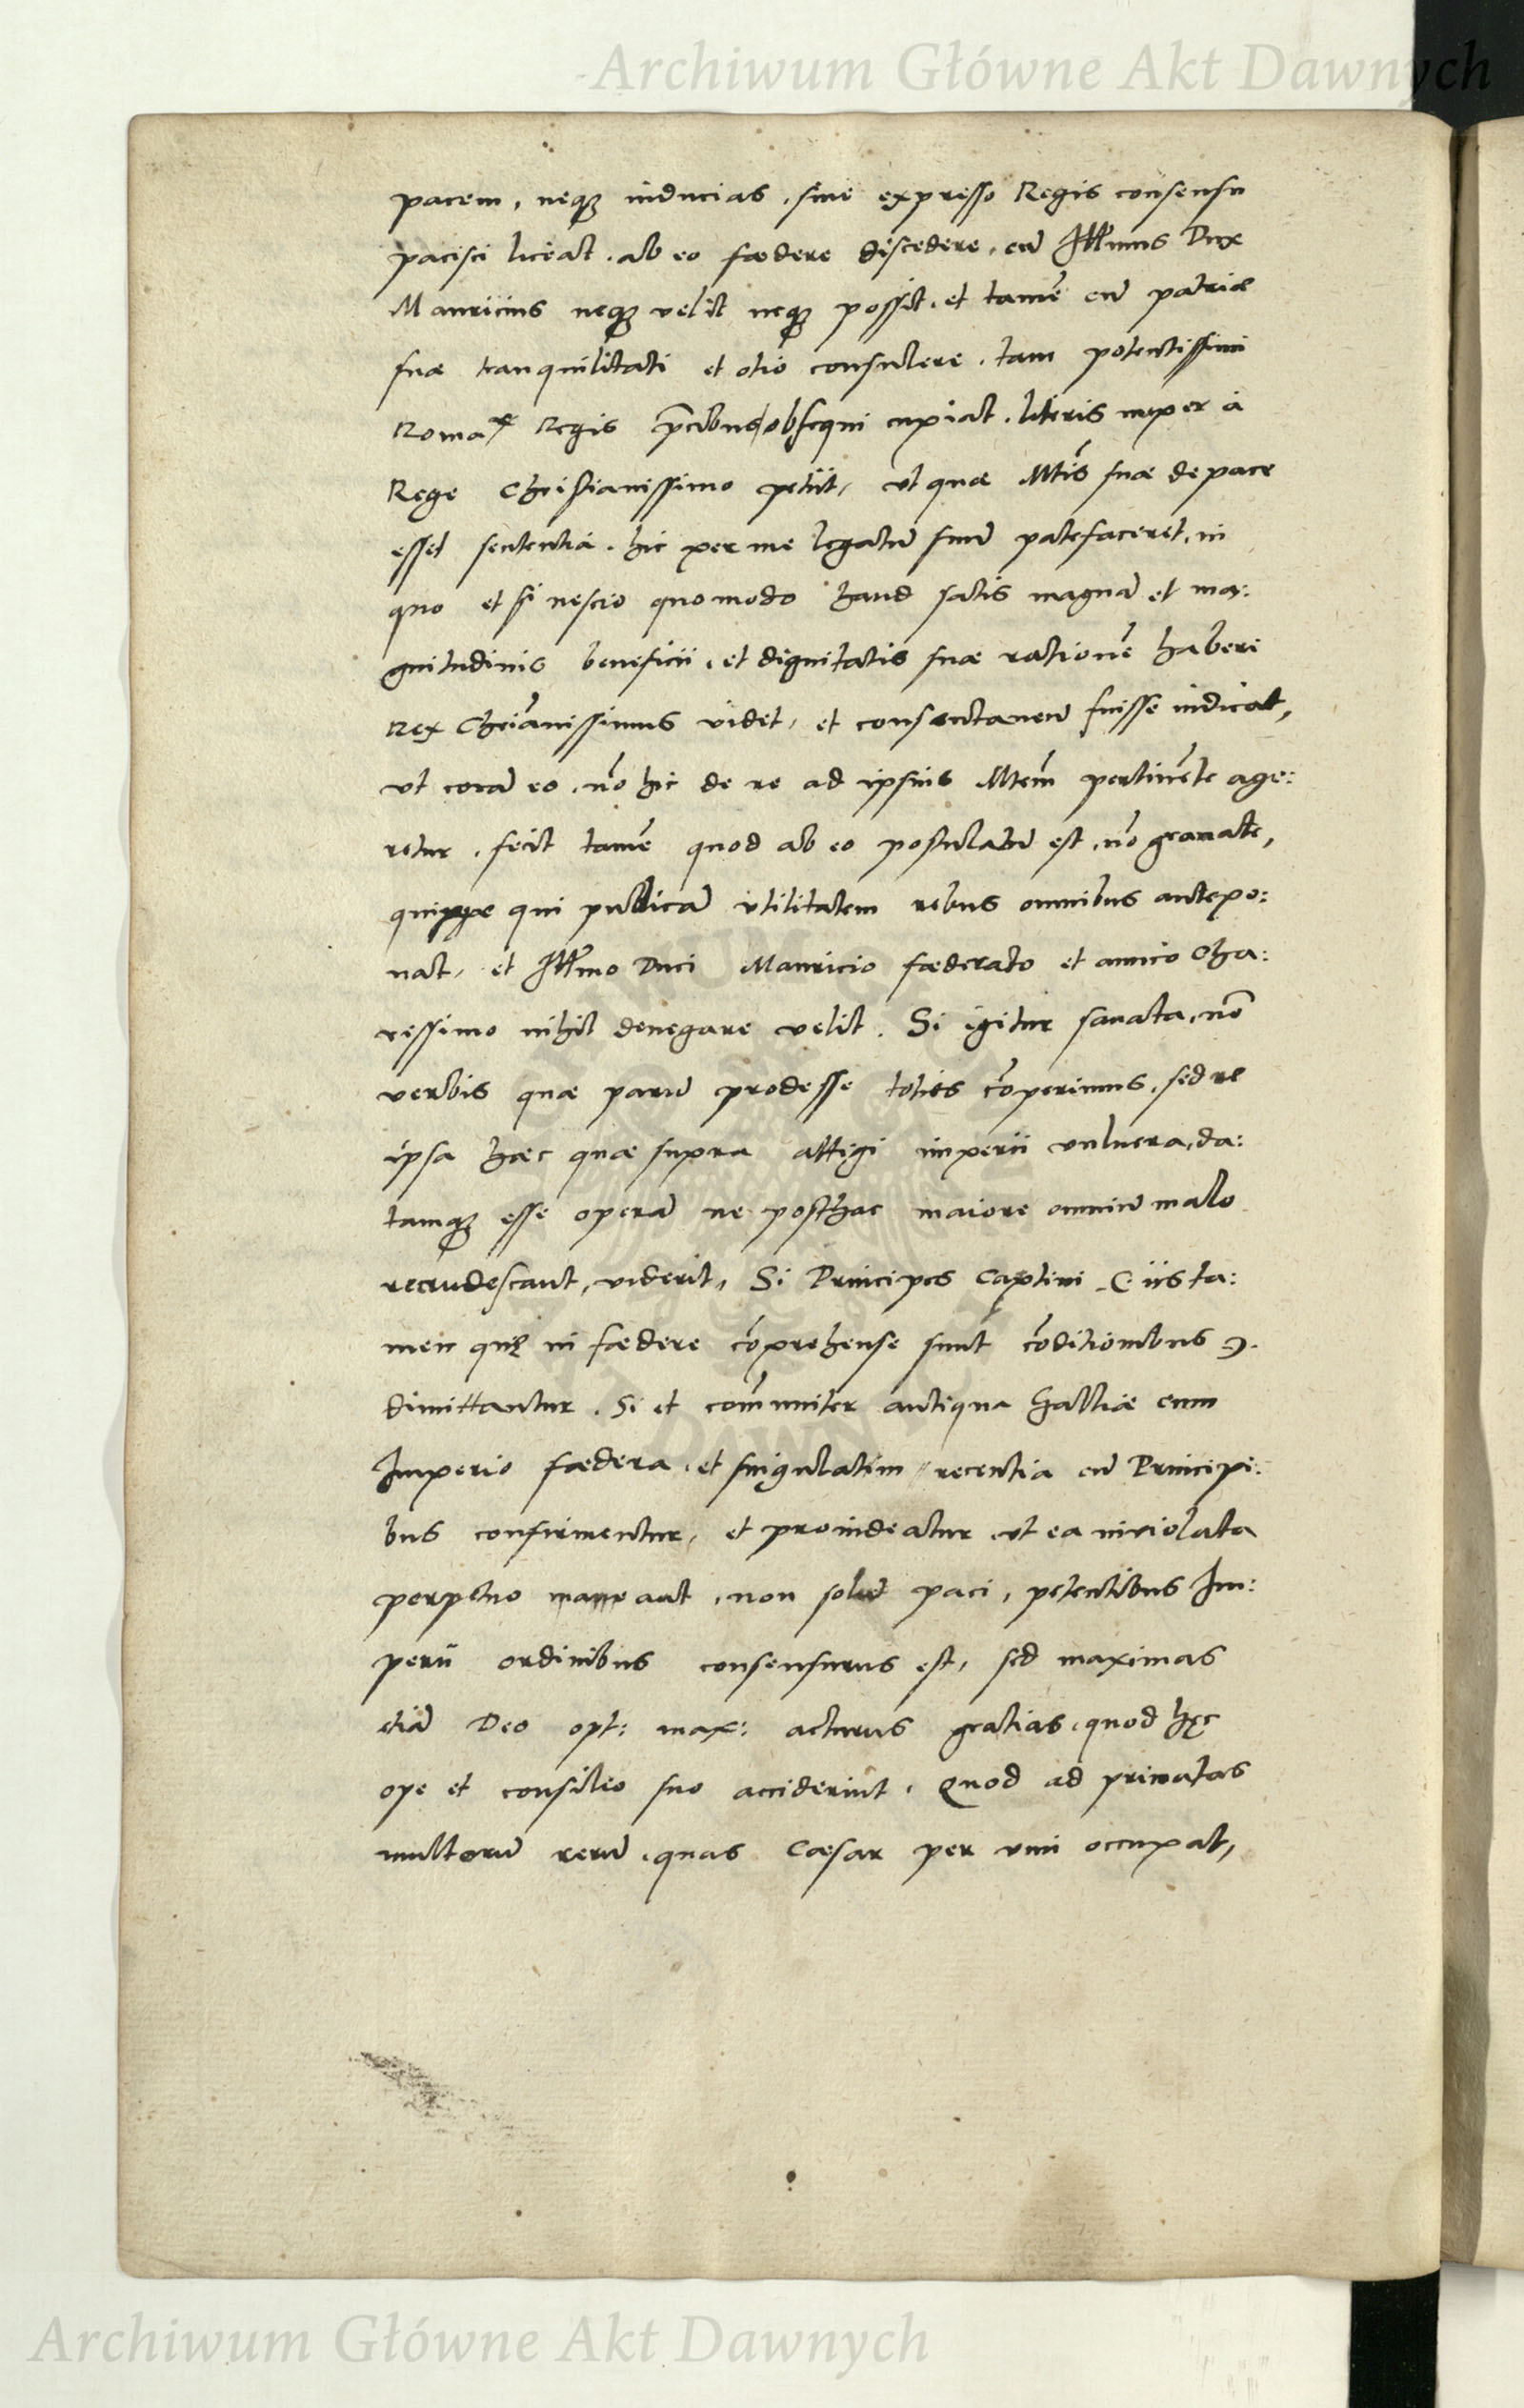 Archiwum Główne Akt Dawnych
pacem, neq3 inducias, sine expresso Regis consensu
pacisci liceat. ab eo fœdere discedere, cũ Illmus Dux
Mauricius neq3 velit neq3 possit. et tamẽ cũ patriæ
suæ tranquilitati et otio consulere, tam potentissimi
Romaꝝ Regis p̃cibus obsequi cupiat. literis nuper à
Rege Christianissimo petiit, ut quæ Mtis suæ de pace
esset sententia. hic per me legatũ suũ patefaceret, in
quo et si nescio quomodo haud satis magnã et ma:
gnitudinis beneficii, et dignitatis suæ rationẽ haberi
Rex Chriãnissimus videt, et consentaneũ fuisse iudicat,
ut corã eo, nõ hic de re ad ipsius Mtem pertinẽte age:
retur, fecit tamẽ quod ab eo postulatũ est, nõ grauate,
quippe qui publicã utilitatem rebus omnibus antepo:
nat, et Illmo Duci Mauricio fœderato et amico Cha:
rissimo nihil denegare velit. Si igitur sanata, nõ
verbis quæ parũ prodesse toties cõperimus, sed re
ipsa hæc quæ supra attigi imperii vulnera, da:
tamq3 esse operã ne posthac maiore omniũ malo
recrudescant, viderit, Si Principes Captiui (iis ta:
men quę in fœdere cõprehense sunt cõditionibus).
dimittantur. Si et com̃uniter antiqua Galliæ cum
Imperio fœdera, et singulatim recentia cũ Principi:
bus confirmentur, et prouideatur ut ea inuiolata
perpetuo maneant, non solũ paci, petentibus Im:
perii ordinibus consensurus est, sed maximas
etiã Deo opt: max: acturus gratias, quod hęc
ope et consilio suo acciderint. Quod ad priuatas
multorũ rerũ, quas Cæsar per vim occupat,
Archiwum Główne Akt Dawnych